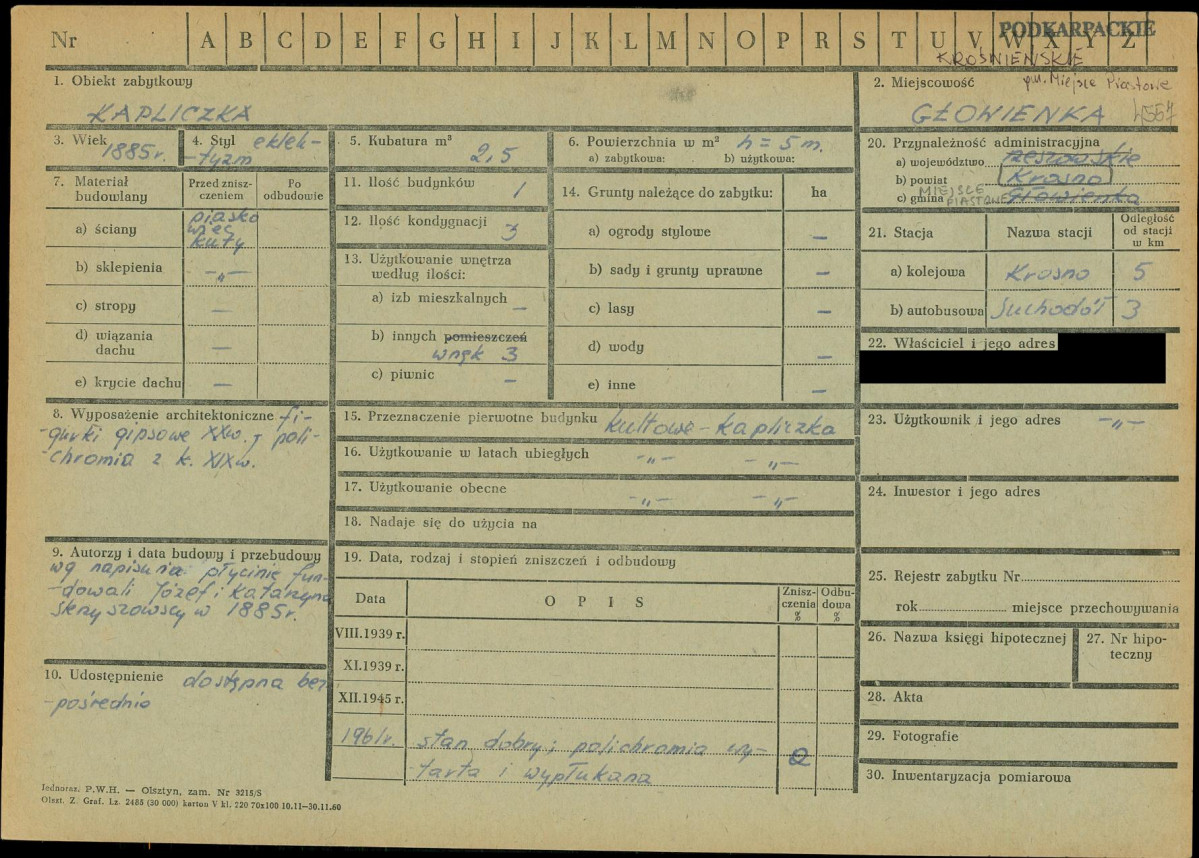 Nr A B C D E F G H I J K L M N O P R S T U V W X Y Z
PODKARPACKIE
KROŚNIEŃSKIE
1. Obiekt zabytkowy
KAPLICZKA
2. Miejscowość
gm. Miejsce Piastowe
GŁOWIENKA
3. Wiek
1885r.
4. Styl eklek-
-tyzm
5. Kubatura m³
2,5
6. Powierzchnia w m² h = 5 m.
a) zabytkowa: b) użytkowa:
7. Materiał budowlany
Przed znisz-
czeniem
Po
odbudowie
a) ściany
piasko
wiec
kuty
b) sklepienia -„-
c) stropy —
d) wiązania
dachu —
e) krycie dachu —
8. Wyposażenie architektoniczne fi-
-gurki gipsowe XXw. j poli-
-chromia z k. XIXw.
9. Autorzy i data budowy i przebudowy
wg napisu na płycinie fun-
-dowali Józef i Katarzyna
Skryszowscy w 1885r.
10. Udostępnienie dostępna bez-
-pośrednio
11. Ilość budynków 1
12. Ilość kondygnacji 3
13. Użytkowanie wnętrza
według ilości:
a) izb mieszkalnych —
b) innych pomieszczeń
wnęk 3
c) piwnic —
14. Grunty należące do zabytku: ha
a) ogrody stylowe —
b) sady i grunty uprawne —
c) lasy —
d) wody —
e) inne —
15. Przeznaczenie pierwotne budynku kultowe - kapliczka
16. Użytkowanie w latach ubiegłych -„- -„-
17. Użytkowanie obecne -„- -„-
18. Nadaje się do użycia na
19. Data, rodzaj i stopień zniszczeń i odbudowy
Data OPIS Znisz-
czenia
% Odbu-
dowa
%
VIII.1939 r.
XI.1939 r.
XII.1945 r.
1961r. stan dobry; polichromia wy-
-tarta i wypłukana 0
20. Przynależność administracyjna
a) województwo rzeszowskie
b) powiat Krosno
c) gmina MIEJSCE
PIASTOWE Głowienka
21. Stacja Nazwa stacji Odległość
od stacji
w km
a) kolejowa Krosno 5
b) autobusowa Suchodół 3
22. Właściciel i jego adres
23. Użytkownik i jego adres -„-
24. Inwestor i jego adres
25. Rejestr zabytku Nr
rok miejsce przechowywania
26. Nazwa księgi hipotecznej
27. Nr hipo-
teczny
28. Akta
29. Fotografie
30. Inwentaryzacja pomiarowa
Jednoraz. P.W.H. — Olsztyn, zam. Nr 3215/S
Olszt. Z. Graf. Lz. 2485 (30 000) karton V kl. 220 70x100 10.11—30.11.60